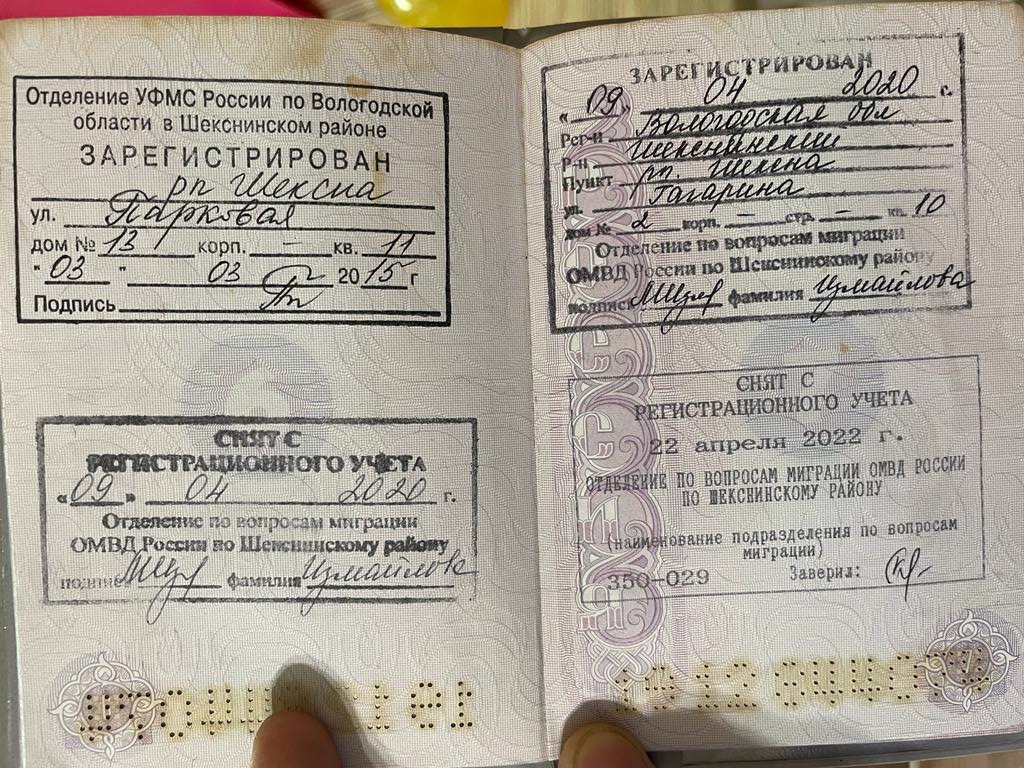 Отделение УФМС России по Вологодской
области в Шекснинском районе
ЗАРЕГИСТРИРОВАН
рп Шексна
ул. Парковая
дом № 13 корп. — кв. 11
"03" 03 2015 г
Подпись
СНЯТ С
РЕГИСТРАЦИОННОГО УЧЕТА
«09» 04 2020 г.
Отделение по вопросам миграции
ОМВД России по Шекснинскому району
подпись фамилия Измайлова
ЗАРЕГИСТРИРОВАН
«09» 04 2020 г.
Рег-н Вологодская обл
Р-н Шекснинский
Пункт рп.
ул. Гагарина
дом № 2 корп. — стр. — кв. 10
Отделение по вопросам миграции
ОМВД России по Шекснинскому району
подпись фамилия Измайлова
СНЯТ С
РЕГИСТРАЦИОННОГО УЧЕТА
22 апреля 2022 г.
ОТДЕЛЕНИЕ ПО ВОПРОСАМ МИГРАЦИИ ОМВД РОССИИ
ПО ШЕКСНИНСКОМУ РАЙОНУ
(наименование подразделения по вопросам
миграции)
350-029 Заверил: